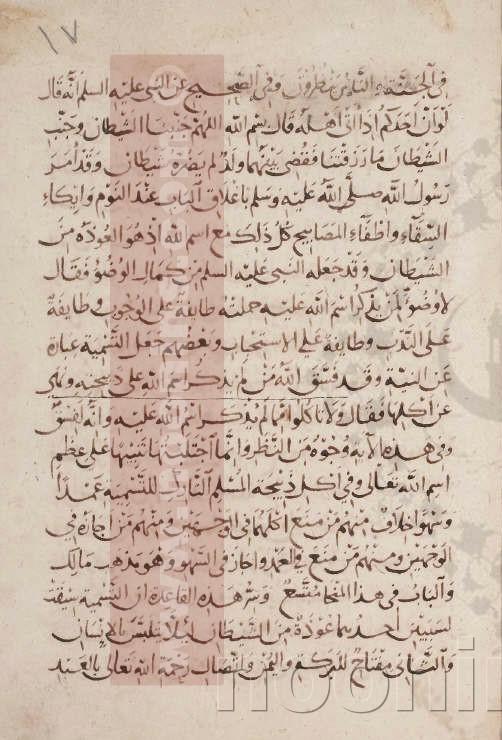 ١٧
في الحقيقة التلبس مطرود وفي الصحيح عن النبي عليه السلم انه قال
لو ان احدكم اذا اتى اهله قال بسم الله اللهم جنبنا الشيطان وجنب
الشيطان ما رزقتنا فقضى بينهما ولد لم يضره شيطان وقد امر
رسول الله صلى الله عليه وسلم باغلاق الباب عند النوم وايكاء
السقاء واطفاء المصابيح كل ذلك مع اسم الله اذ هو العوذه من
الشيطان وقد جعله النبي عليه السلم من كمال الوضوء فقال
لا وضوء لمن لم يذكر اسم الله عليه حملته طايفة على الوجوب وطايفة
على الندب وطايفة على الاستحباب وبعضهم جعل التسمية عبارة
عن النية وقد فسق الله من لم يذكر اسم الله على ذبيحته ونهى
عن اكلها فقال ولا تاكلوا مما لم يذكر اسم الله عليه وانه لفسق
وفي هذه الآية وجوه من النظر وانما اجتلبتها تنبيها على عظم
اسم الله تعالى وفي اكل ذبيحة المسلم التارك للتسمية عمدا
وسهوا خلاف منهم من منع اكلها في الوجهين ومنهم من اجازه في
الوجهين ومنهم من منع في العمد واجاز في السهو وهو مذهب مالك
والباب في هذا المنحا متسع وسر هذه القاعدة ان التسمية سيقت
لسببين احدهما عوذة من الشيطان ليلا يتلبس بالانسان
والثاني مفتاح للبركة واليمن واتصال رحمة الله تعالى بالعبد
noonin